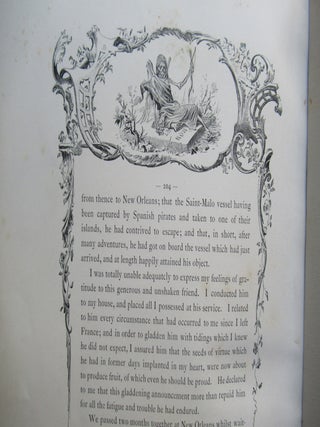 — 204 —
from thence to New Orleans; that the Saint-Malo vessel having
been captured by Spanish pirates and taken to one of their
islands, he had contrived to escape; and that, in short, after
many adventures, he had got on board the vessel which had just
arrived, and at length happily attained his object.
I was totally unable adequately to express my feelings of gra-
titude to this generous and unshaken friend. I conducted him
to my house, and placed all I possessed at his service. I related
to him every circumstance that had occurred to me since I left
France; and in order to gladden him with tidings which I knew
he did not expect, I assured him that the seeds of virtue which
he had in former days implanted in my heart, were now about
to produce fruit, of which even he should be proud. He declared
to me that this gladdening announcement more than repaid him
for all the fatigue and trouble he had endured.
We passed two months together at New Orleans whilst wait-